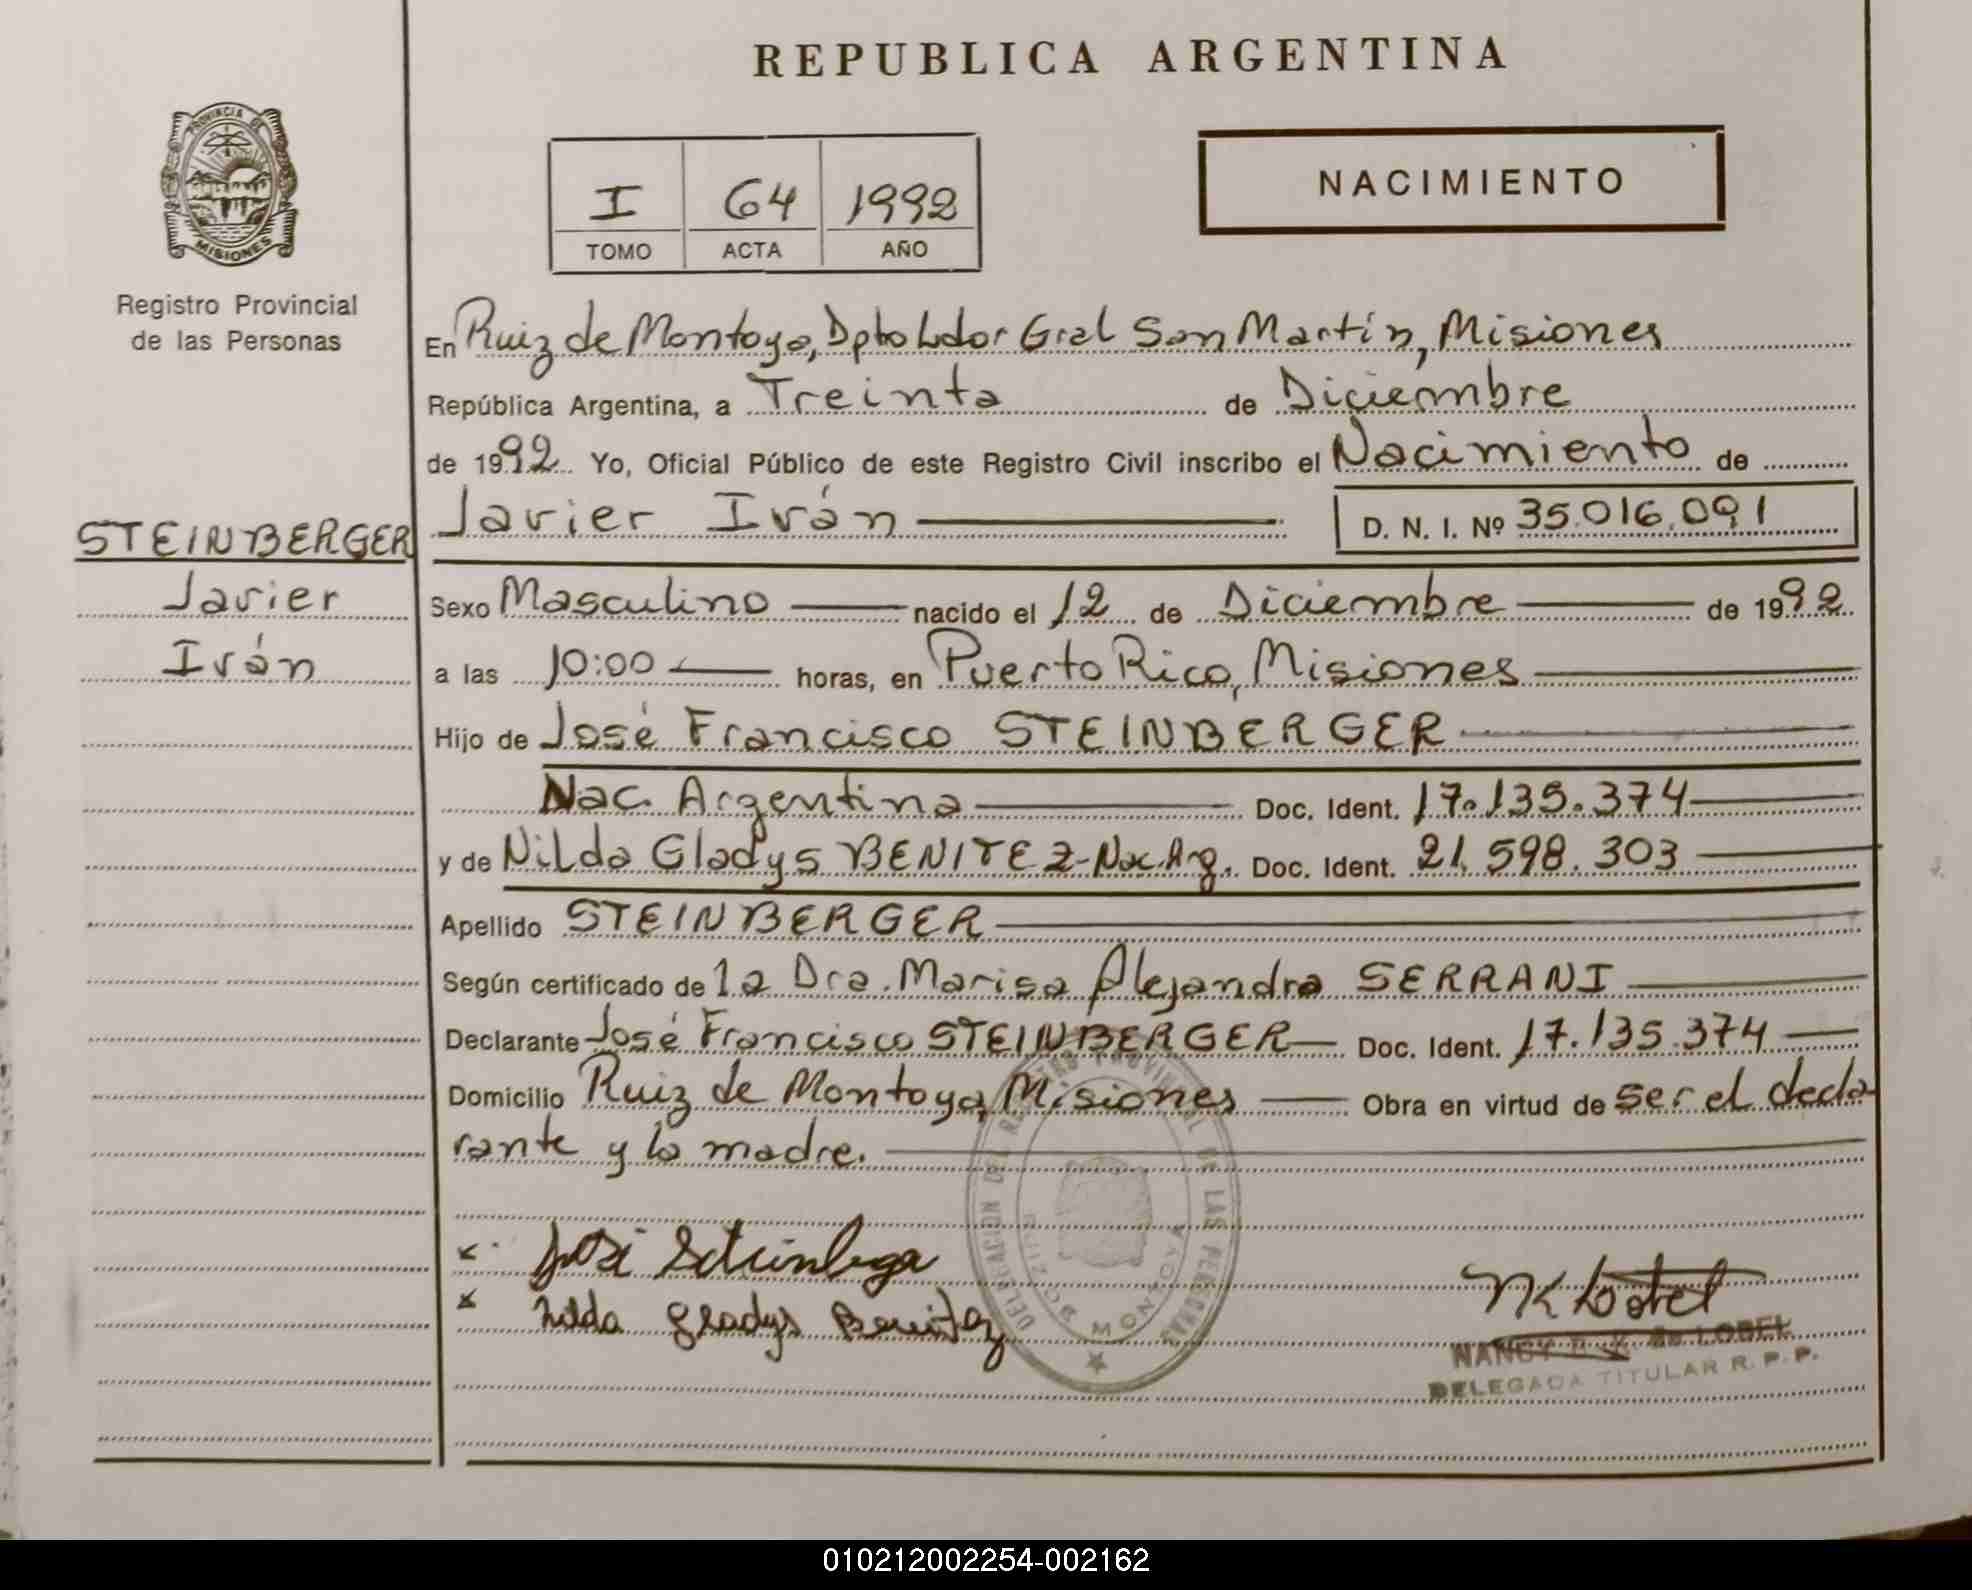 REPUBLICA ARGENTINA
PROVINCIA DE
MISIONES
Registro Provincial
de las Personas
I 64 1992
TOMO ACTA AÑO
NACIMIENTO
En Ruiz de Montoya, Dpto Ldor Gral San Martín, Misiones
República Argentina, a Treinta de Diciembre
de 1992 Yo, Oficial Público de este Registro Civil inscribo el Nacimiento de
Javier Iván D. N. I. Nº 35.016.091
STEINBERGER
Javier
Iván
Sexo Masculino nacido el 12 de Diciembre de 1992
a las 10:00 horas, en Puerto Rico, Misiones
Hijo de José Francisco STEINBERGER
Nac. Argentina Doc. Ident. 17.135.374
y de Nilda Gladys BENITEZ-Nac.Arg. Doc. Ident. 21.598.303
Apellido STEINBERGER
Según certificado de la Dra. Marisa Alejandra SERRANI
Declarante José Francisco STEINBERGER Doc. Ident. 17.135.374
Domicilio Ruiz de Montoya, Misiones Obra en virtud de ser el decla
rante y la madre.
DELEGACION DEL REGISTRO PROVINCIAL DE LAS PERSONAS
RUIZ DE MONTOYA
José Steinberger
Nilda Gladys Benitez
NANCY de LOBEL
DELEGADA TITULAR R. P. P.
010212002254-002162